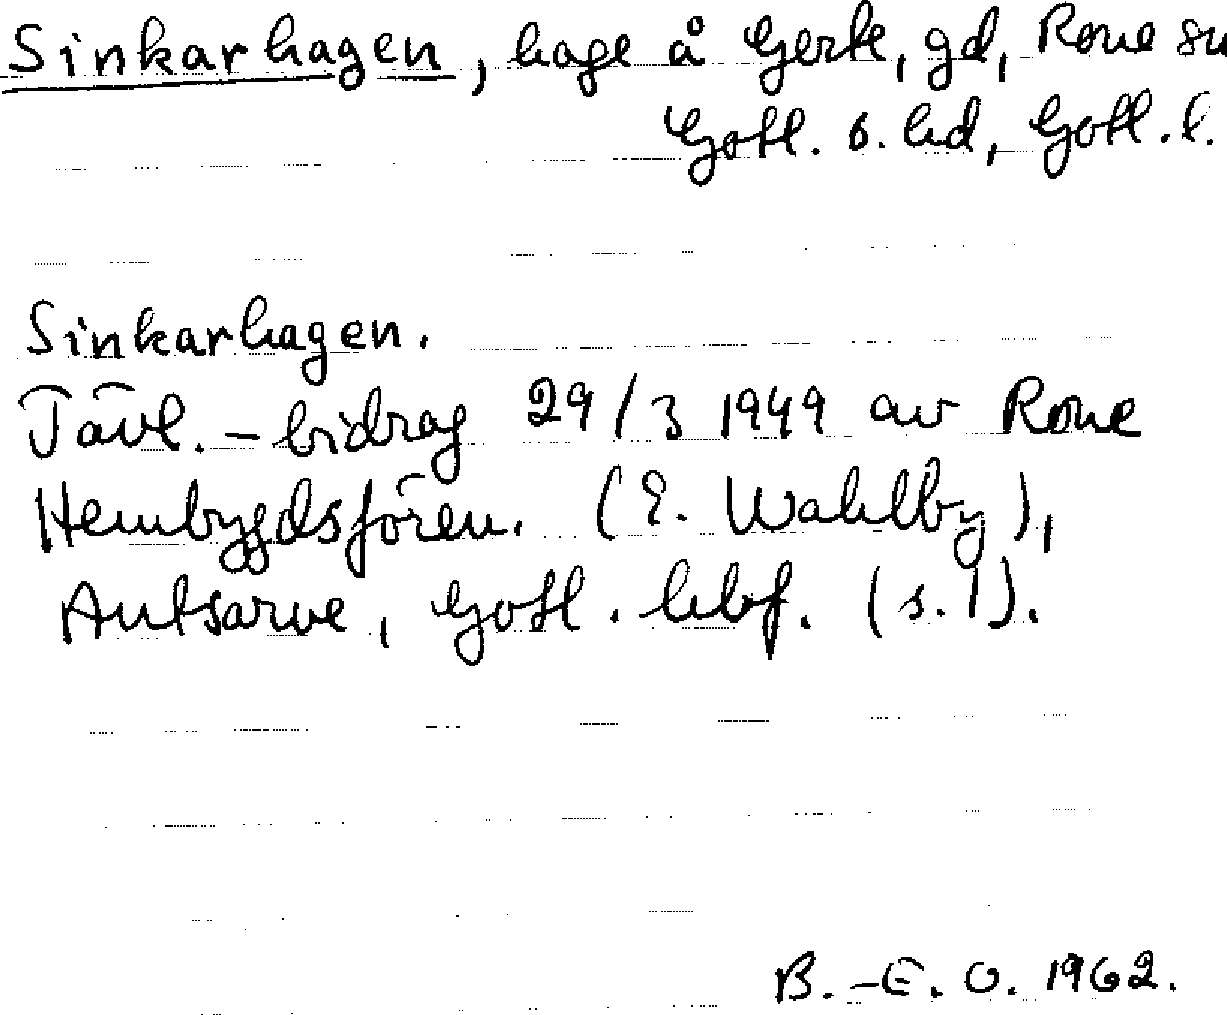 Sinkarhagen, hage å Gerle, gd, Rone sn
Gotl. s. hd, Gotl. l.
Sinkarhagen.
Tävl.-bidrag 29/3 1949 av Rone
Hembygdsfören. (E. Wahlby),
Autsarve, Gotl. hbf. (s. 1).
B.-E. O. 1962.